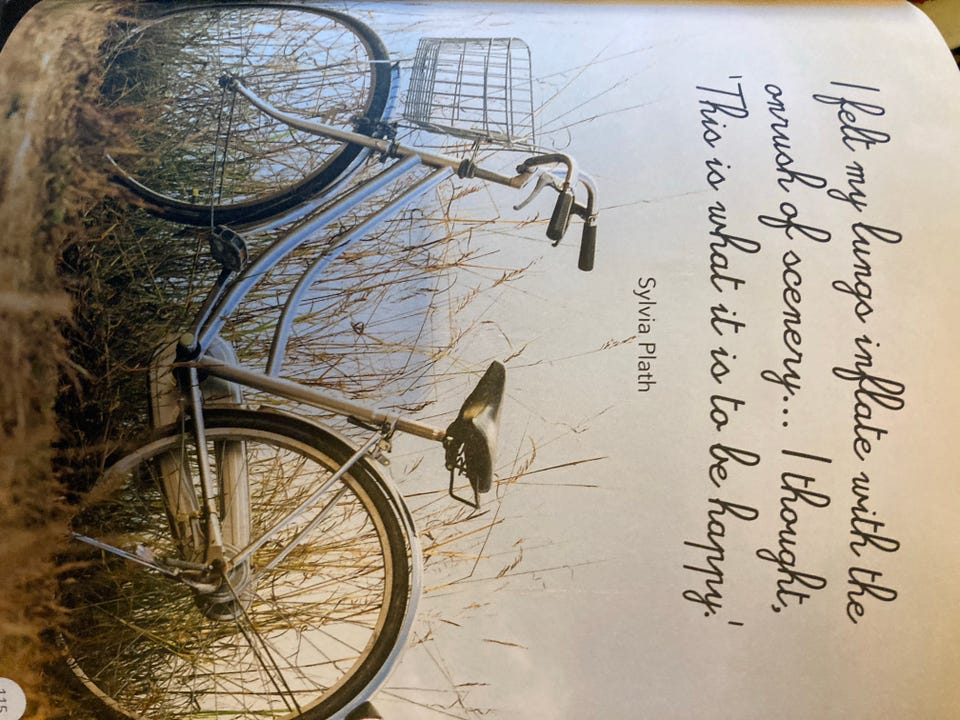 I felt my lungs inflate with the
onrush of scenery... I thought,
'This is what it is to be happy.'
Sylvia Plath
115